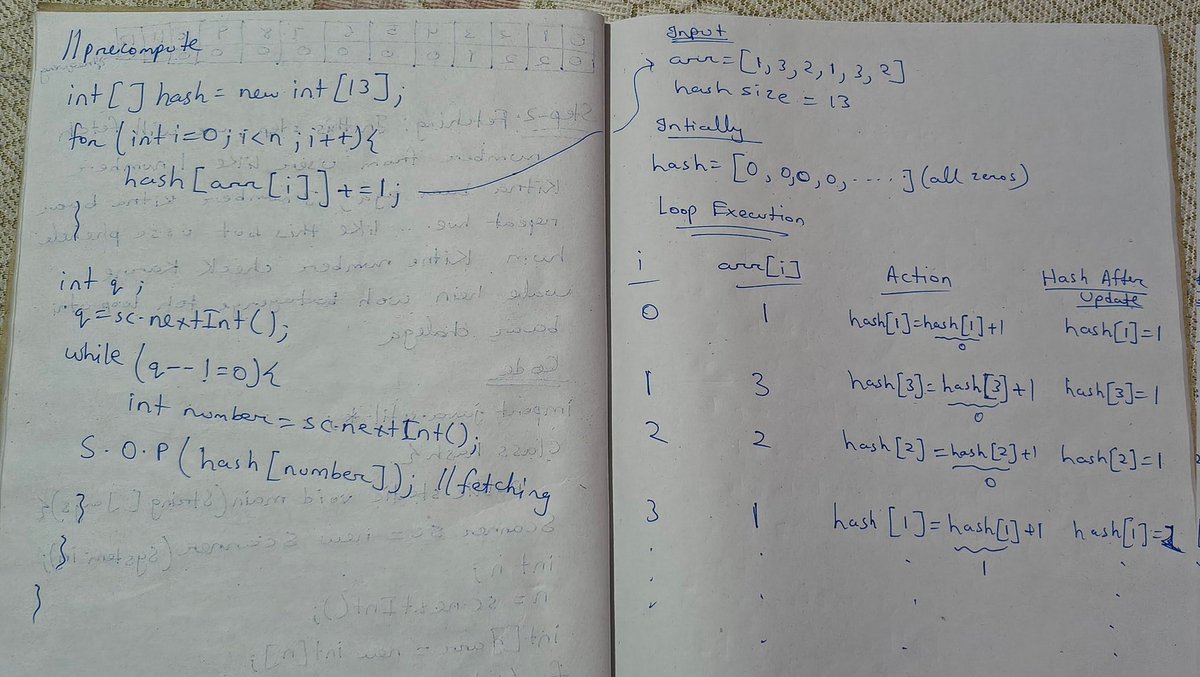 //precompute
int[] hash = new int[13];
for (int i=0; i<n; i++){
hash[arr[i]]+=1;
}
int q;
q=sc.nextInt();
while (q--!=0){
int number = sc.nextInt();
S.O.P(hash[number]); //fetching
}
}
}
Input
arr=[1,3,2,1,3,2]
hash size = 13
Intially
hash=[0,0,0,0,.....](all zeros)
Loop Execution
i arr[i] Action Hash After Update
0 1 hash[1]=hash[1]+1 hash[1]=1
0
1 3 hash[3]=hash[3]+1 hash[3]=1
0
2 2 hash[2]=hash[2]+1 hash[2]=1
0
3 1 hash[1]=hash[1]+1 hash[1]=2
1